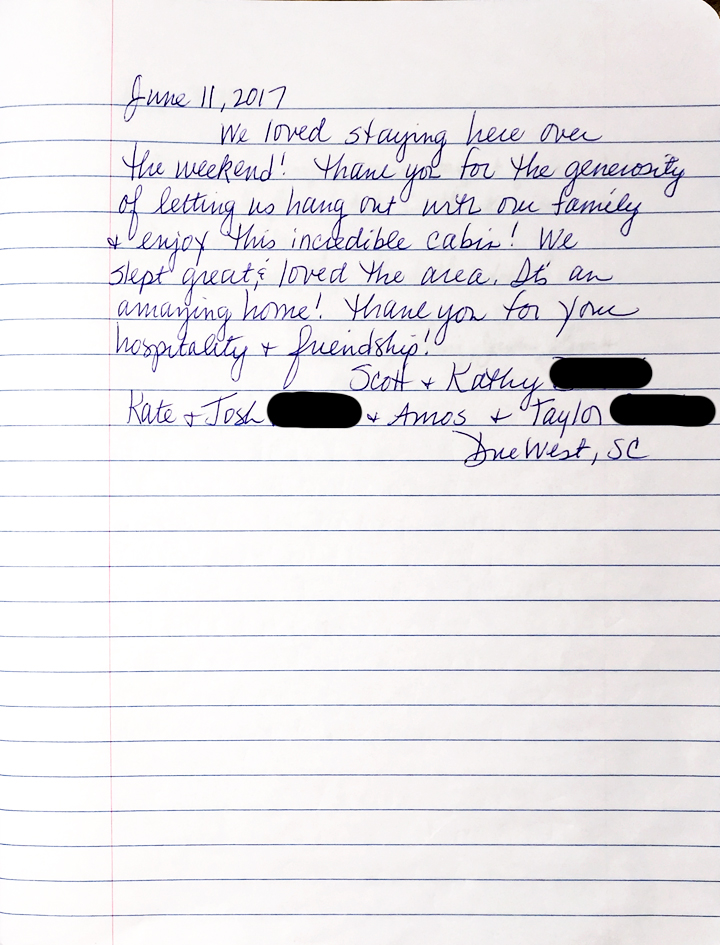 June 11, 2017
We loved staying here over
the weekend! Thank you for the generosity
of letting us hang out with our family
& enjoy this incredible cabin! We
slept great & loved the area. It's an
amazing home! Thank you for your
hospitality & friendship!
Scott & Kathy
Kate & Josh & Amos & Taylor
Due West, SC